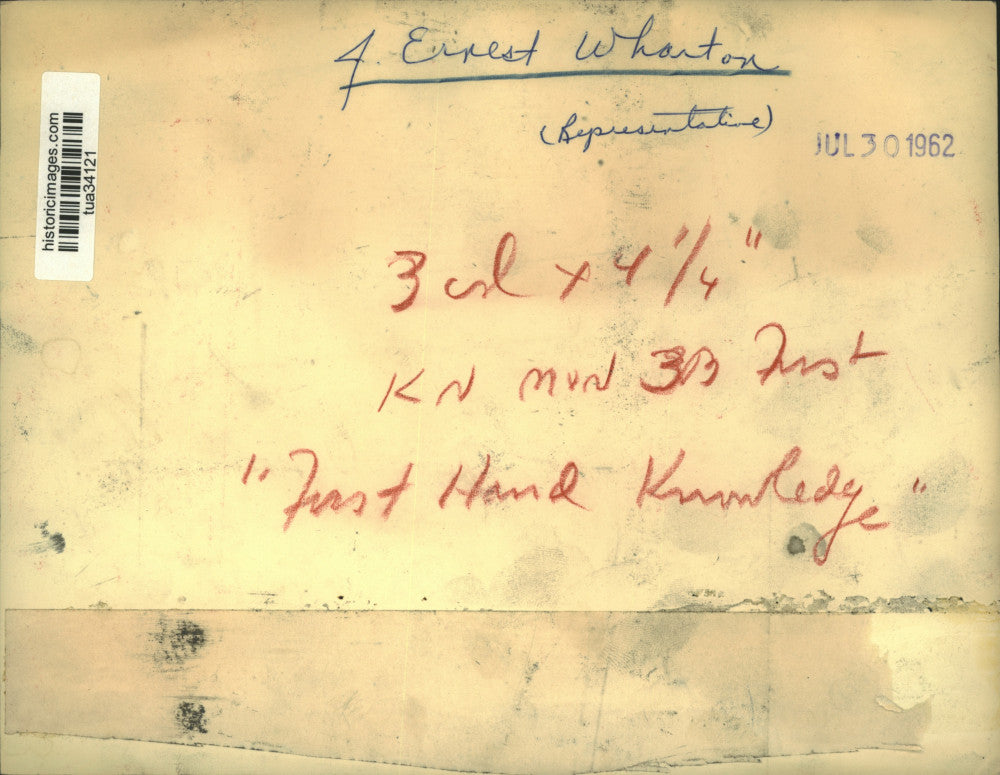 J. Ernest Wharton
(Representative)
JUL 30 1962
historicimages.com
tua34121
3 col x 4 1/4"
KN MON 3B First
"First Hand Knowledge"